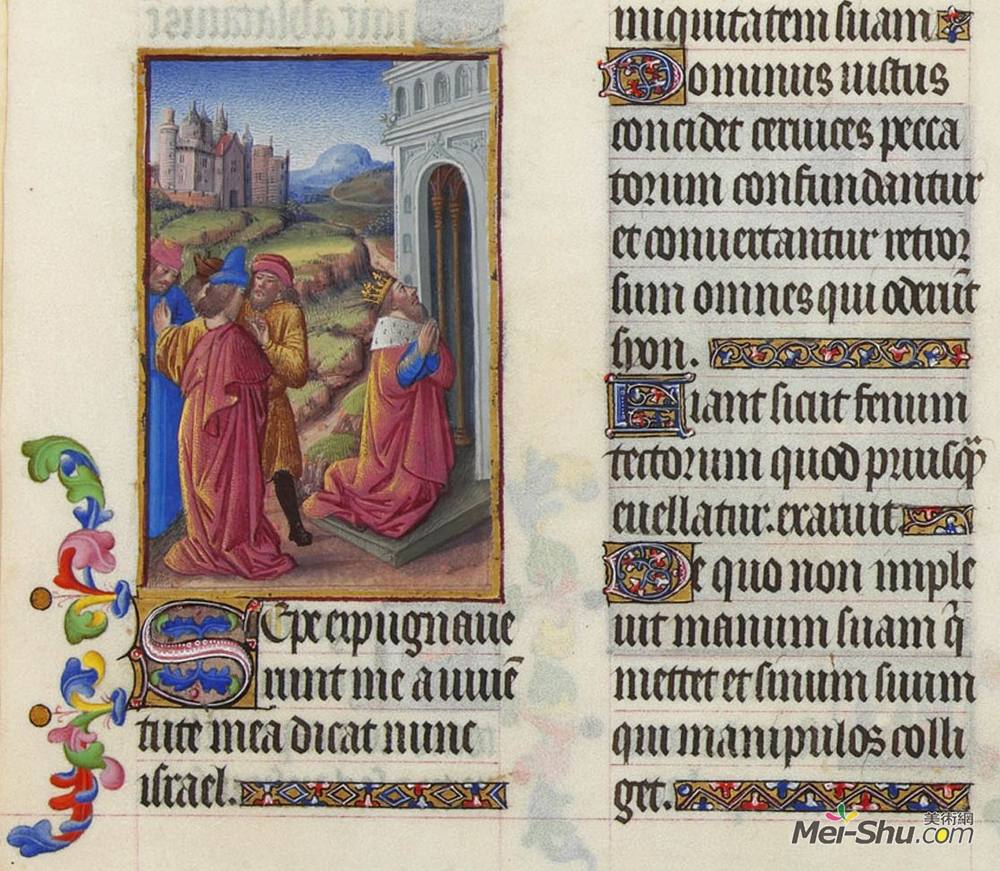 Sepe expugnaue
runt me a iuuē
tute mea dicat nunc
israel.
iniquitatem suam
Dominus iustus
concidet ceruices pecca
torum confundantur
et conuertantur retror
sum omnes qui oderūt
syon.
Fiant sicut fenum
tectorum quod priusq̄
euellatur: exaruit
De quo non imple
uit manum suam q̄
mettet et sinum suum
qui manipulos colli
get.
美術網
Mei-Shu.com